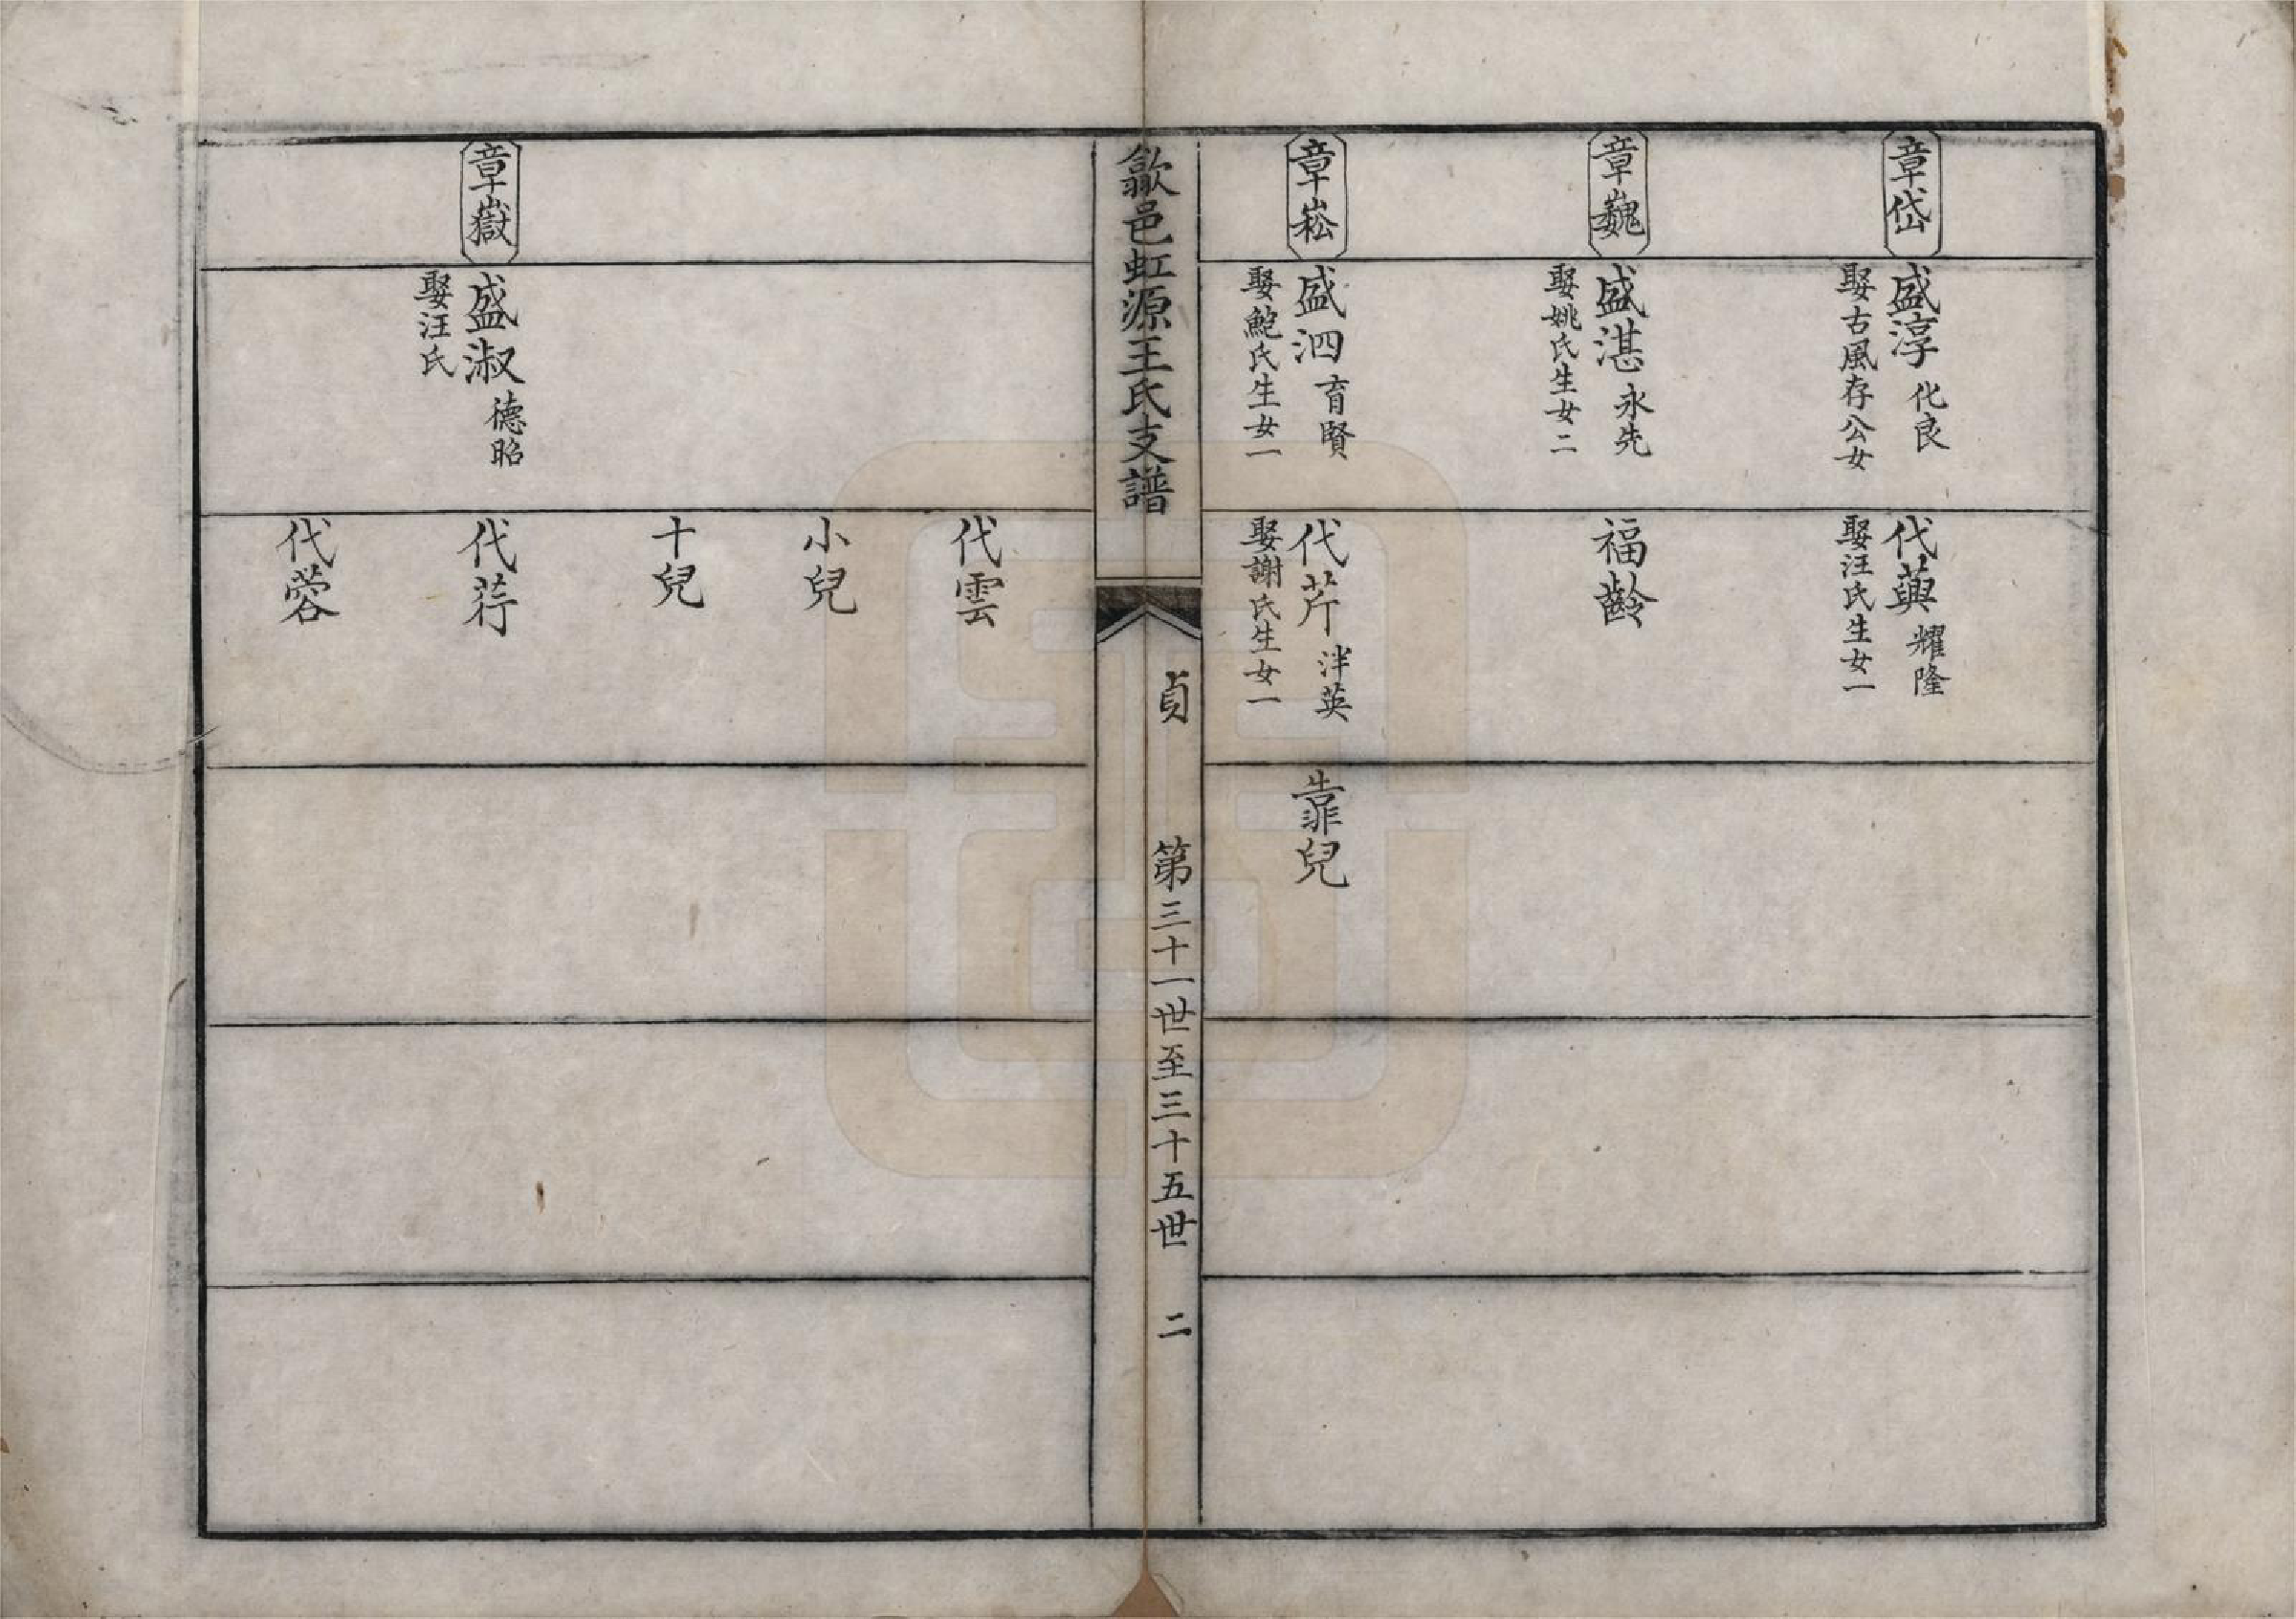 章岱
盛淳 化良
娶古風存公女
代𦽳 耀隆
娶汪氏生女一
章巍
盛湛 永先
娶姚氏生女二
福齡
章崧
盛泗 育賢
娶鮑氏生女一
代芹 泮英
娶謝氏生女一
靠兒
歙邑虹源王氏支譜
貞
第三十一世至三十五世
二
代雲
小兒
十兒
章嶽
盛淑 德昭
娶汪氏
代荇
代蓉